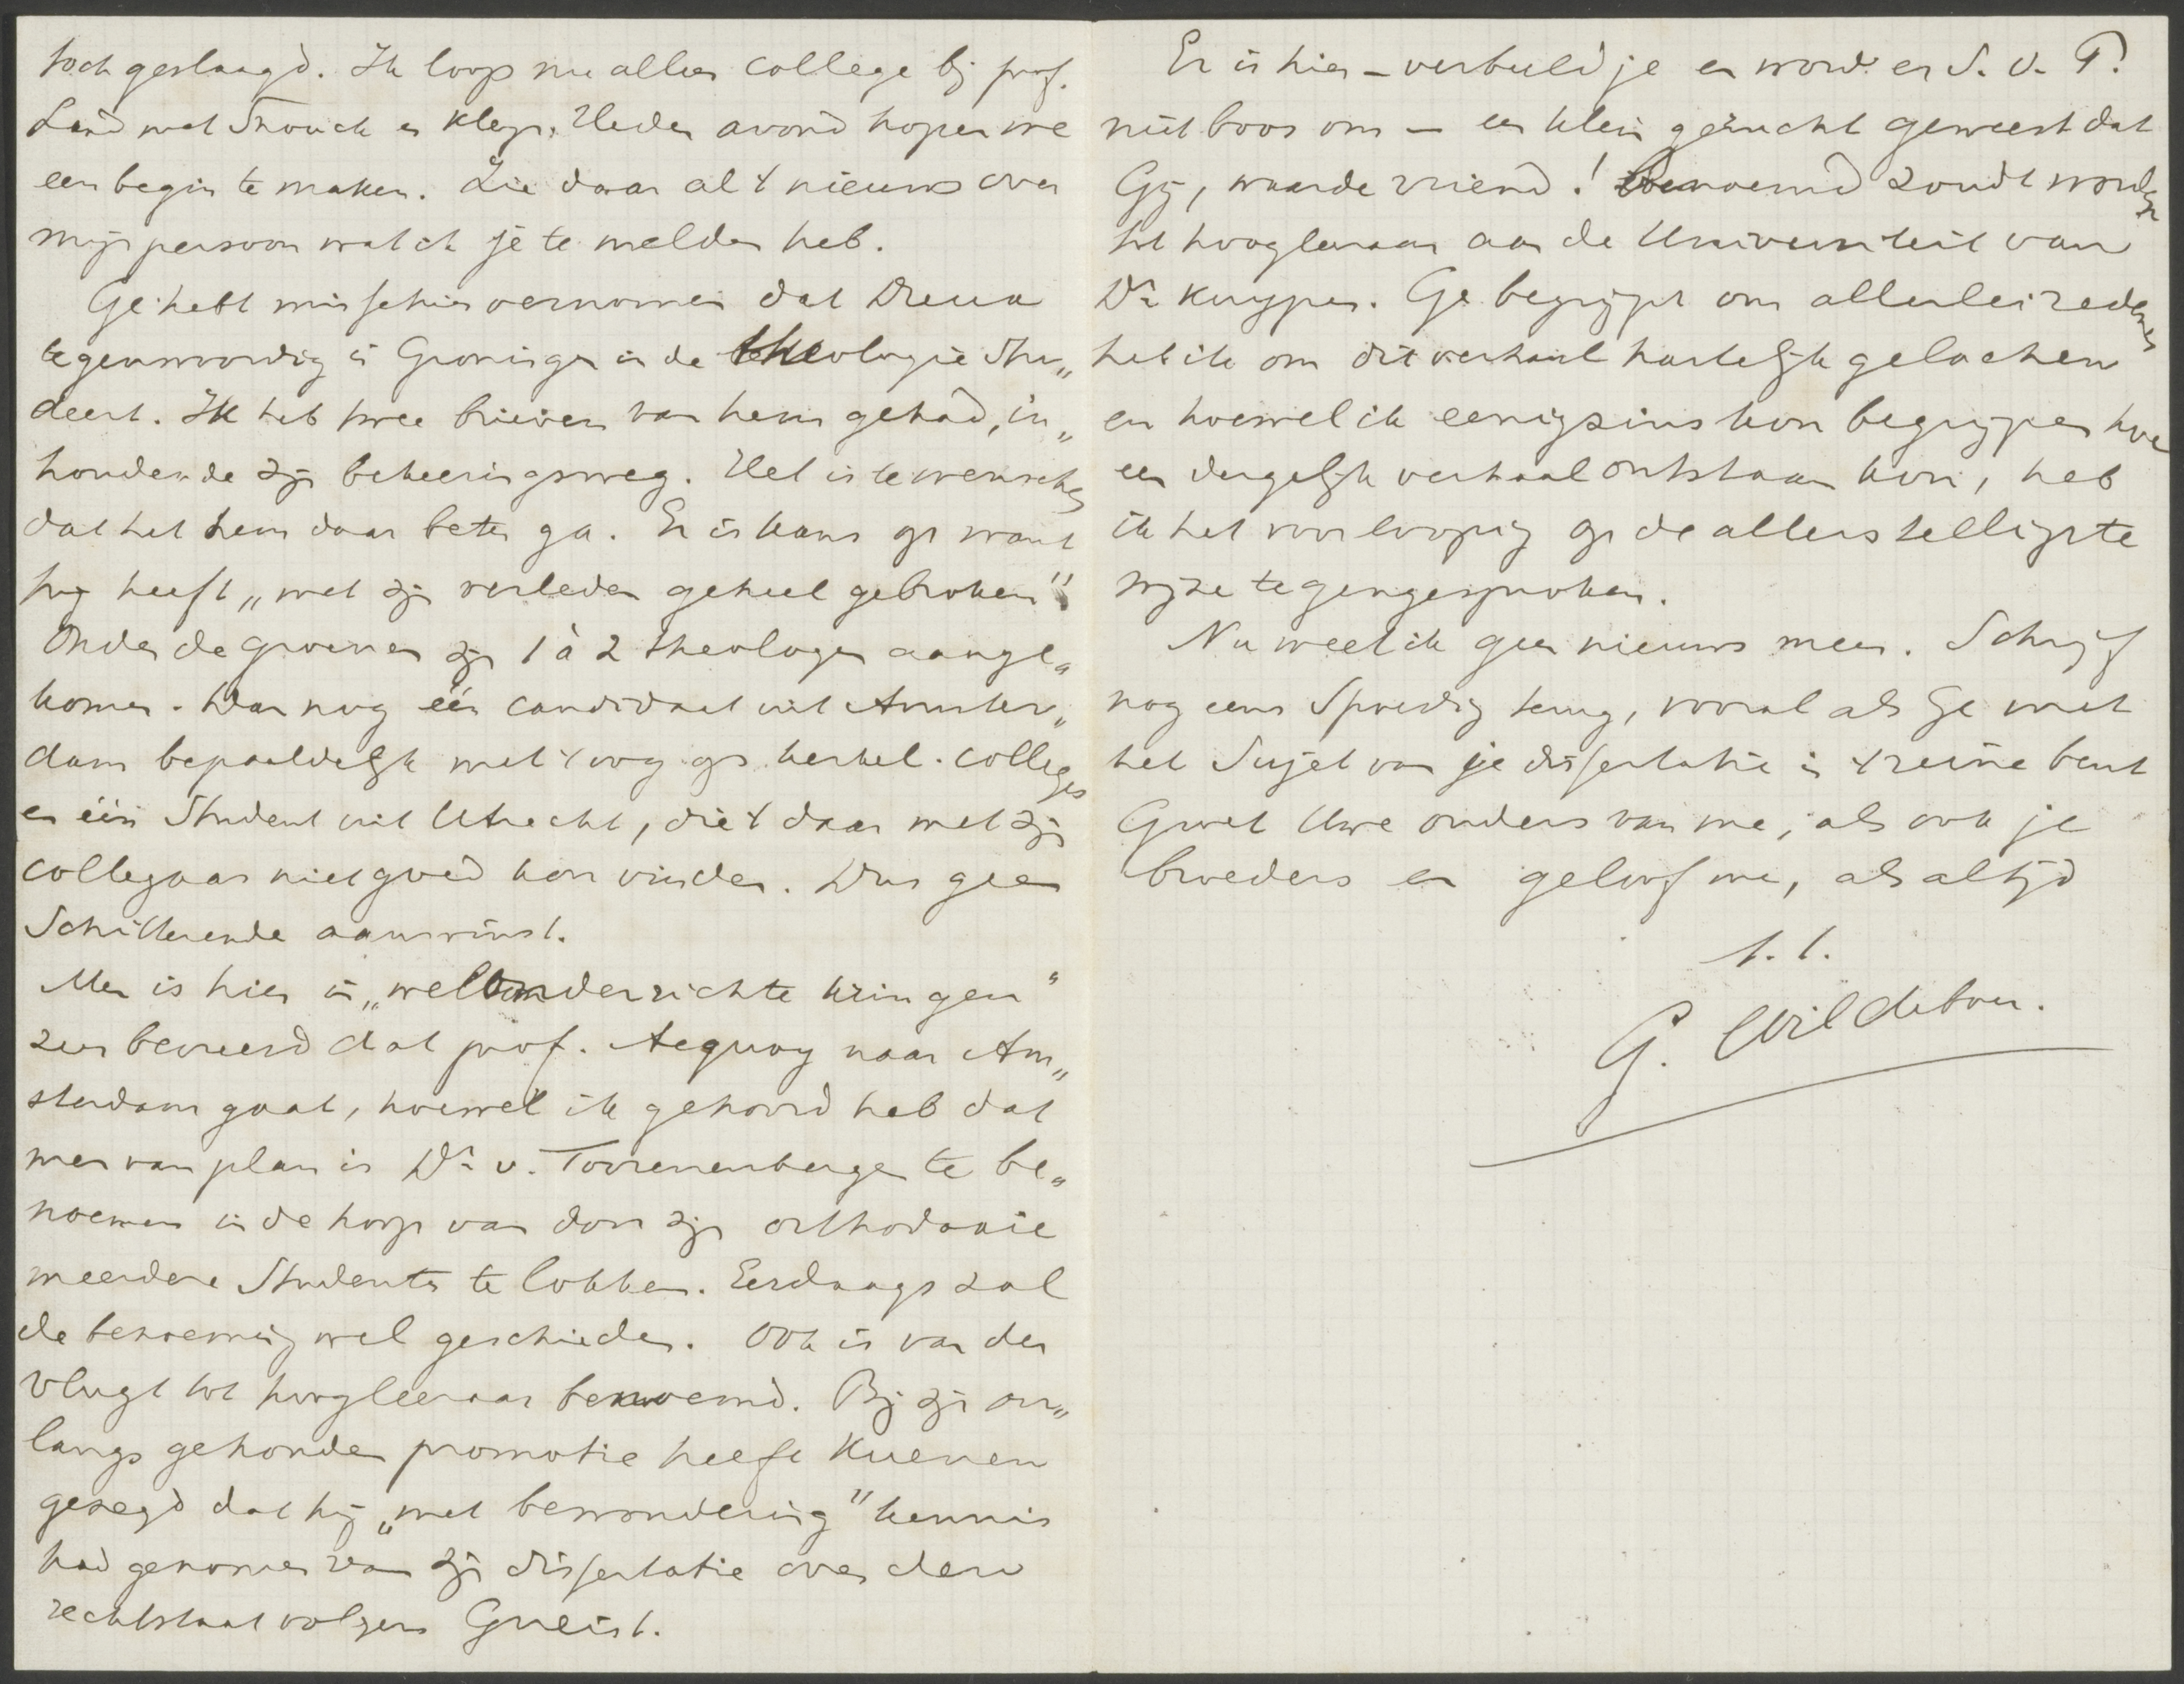 toch geslaagd. Ik loop nu alleen college bij prof.
Land met Snouck en Kleyn. Heden avond hopen we
een begin te maken. Zie daar al 't nieuws over
mijn persoon wat ik je te melden heb.
Ge hebt misschien vernomen dat Dreua
tegenwoordig in Groningen in de theologie stu„
deert. Ik heb twee brieven van hem gehad, in„
houdende zijn bekeeringsweg. Het is te wenschen
dat het hem daar beter ga. Er is kans op want
hij heeft „met zijn verleden geheel gebroken".
Onder de groenen zijn 1 à 2 theologen aange„
komen. Dan nog één candidaat uit Amster„
dam bepaaldelijk met 't oog op kerkel. colleges
en één student uit Utrecht, die 't daar met zijn
collegaas niet goed kon vinden. Dus geen
schitterende aanwinst.
Men is hier in „welonderrichte kringen"
zeer bevreesd dat prof. Acquoy naar Am„
sterdam gaat, hoewel ik gehoord heb dat
men van plan is Dr v. Toorenenbergen te be„
noemen in de hoop van door zijn orthodoxie
meerdere studenten te lokken. Eerdaags zal
de benoeming wel geschieden. Ook is van der
Vlugt tot hoogleeraar benoemd. Bij zijn on„
langs gehouden promotie heeft Kuenen
gezegd dat hij „met bewondering" kennis
had genomen van zijn dissertatie over den
rechtstaat volgens Gneist.
Er is hier – verbeeld je en word er S. V. P.
niet boos om – een klein gerucht geweest dat
Gij, waarde vriend! benoemd zoudt worden
tot hoogleraar aan de Universiteit van
Dr Kuyper. Ge begrijpt om allerlei redenen
heb ik om dit verhaal hartelijk gelachen
en hoewel ik eenigszins kon begrijpen hoe
een dergelijk verhaal ontstaan kon, heb
ik het voorloopig op de allerstelligste
wijze tegengesproken.
Nu weet ik geen nieuws meer. Schrijf
nog eens spoedig terug, vooral als Ge met
het sujet van je dissertatie in 't reine bent
Groet Uwe ouders van me, als ook je
broeders en geloof me, als altijd
t. t.
G. Wildeboer.